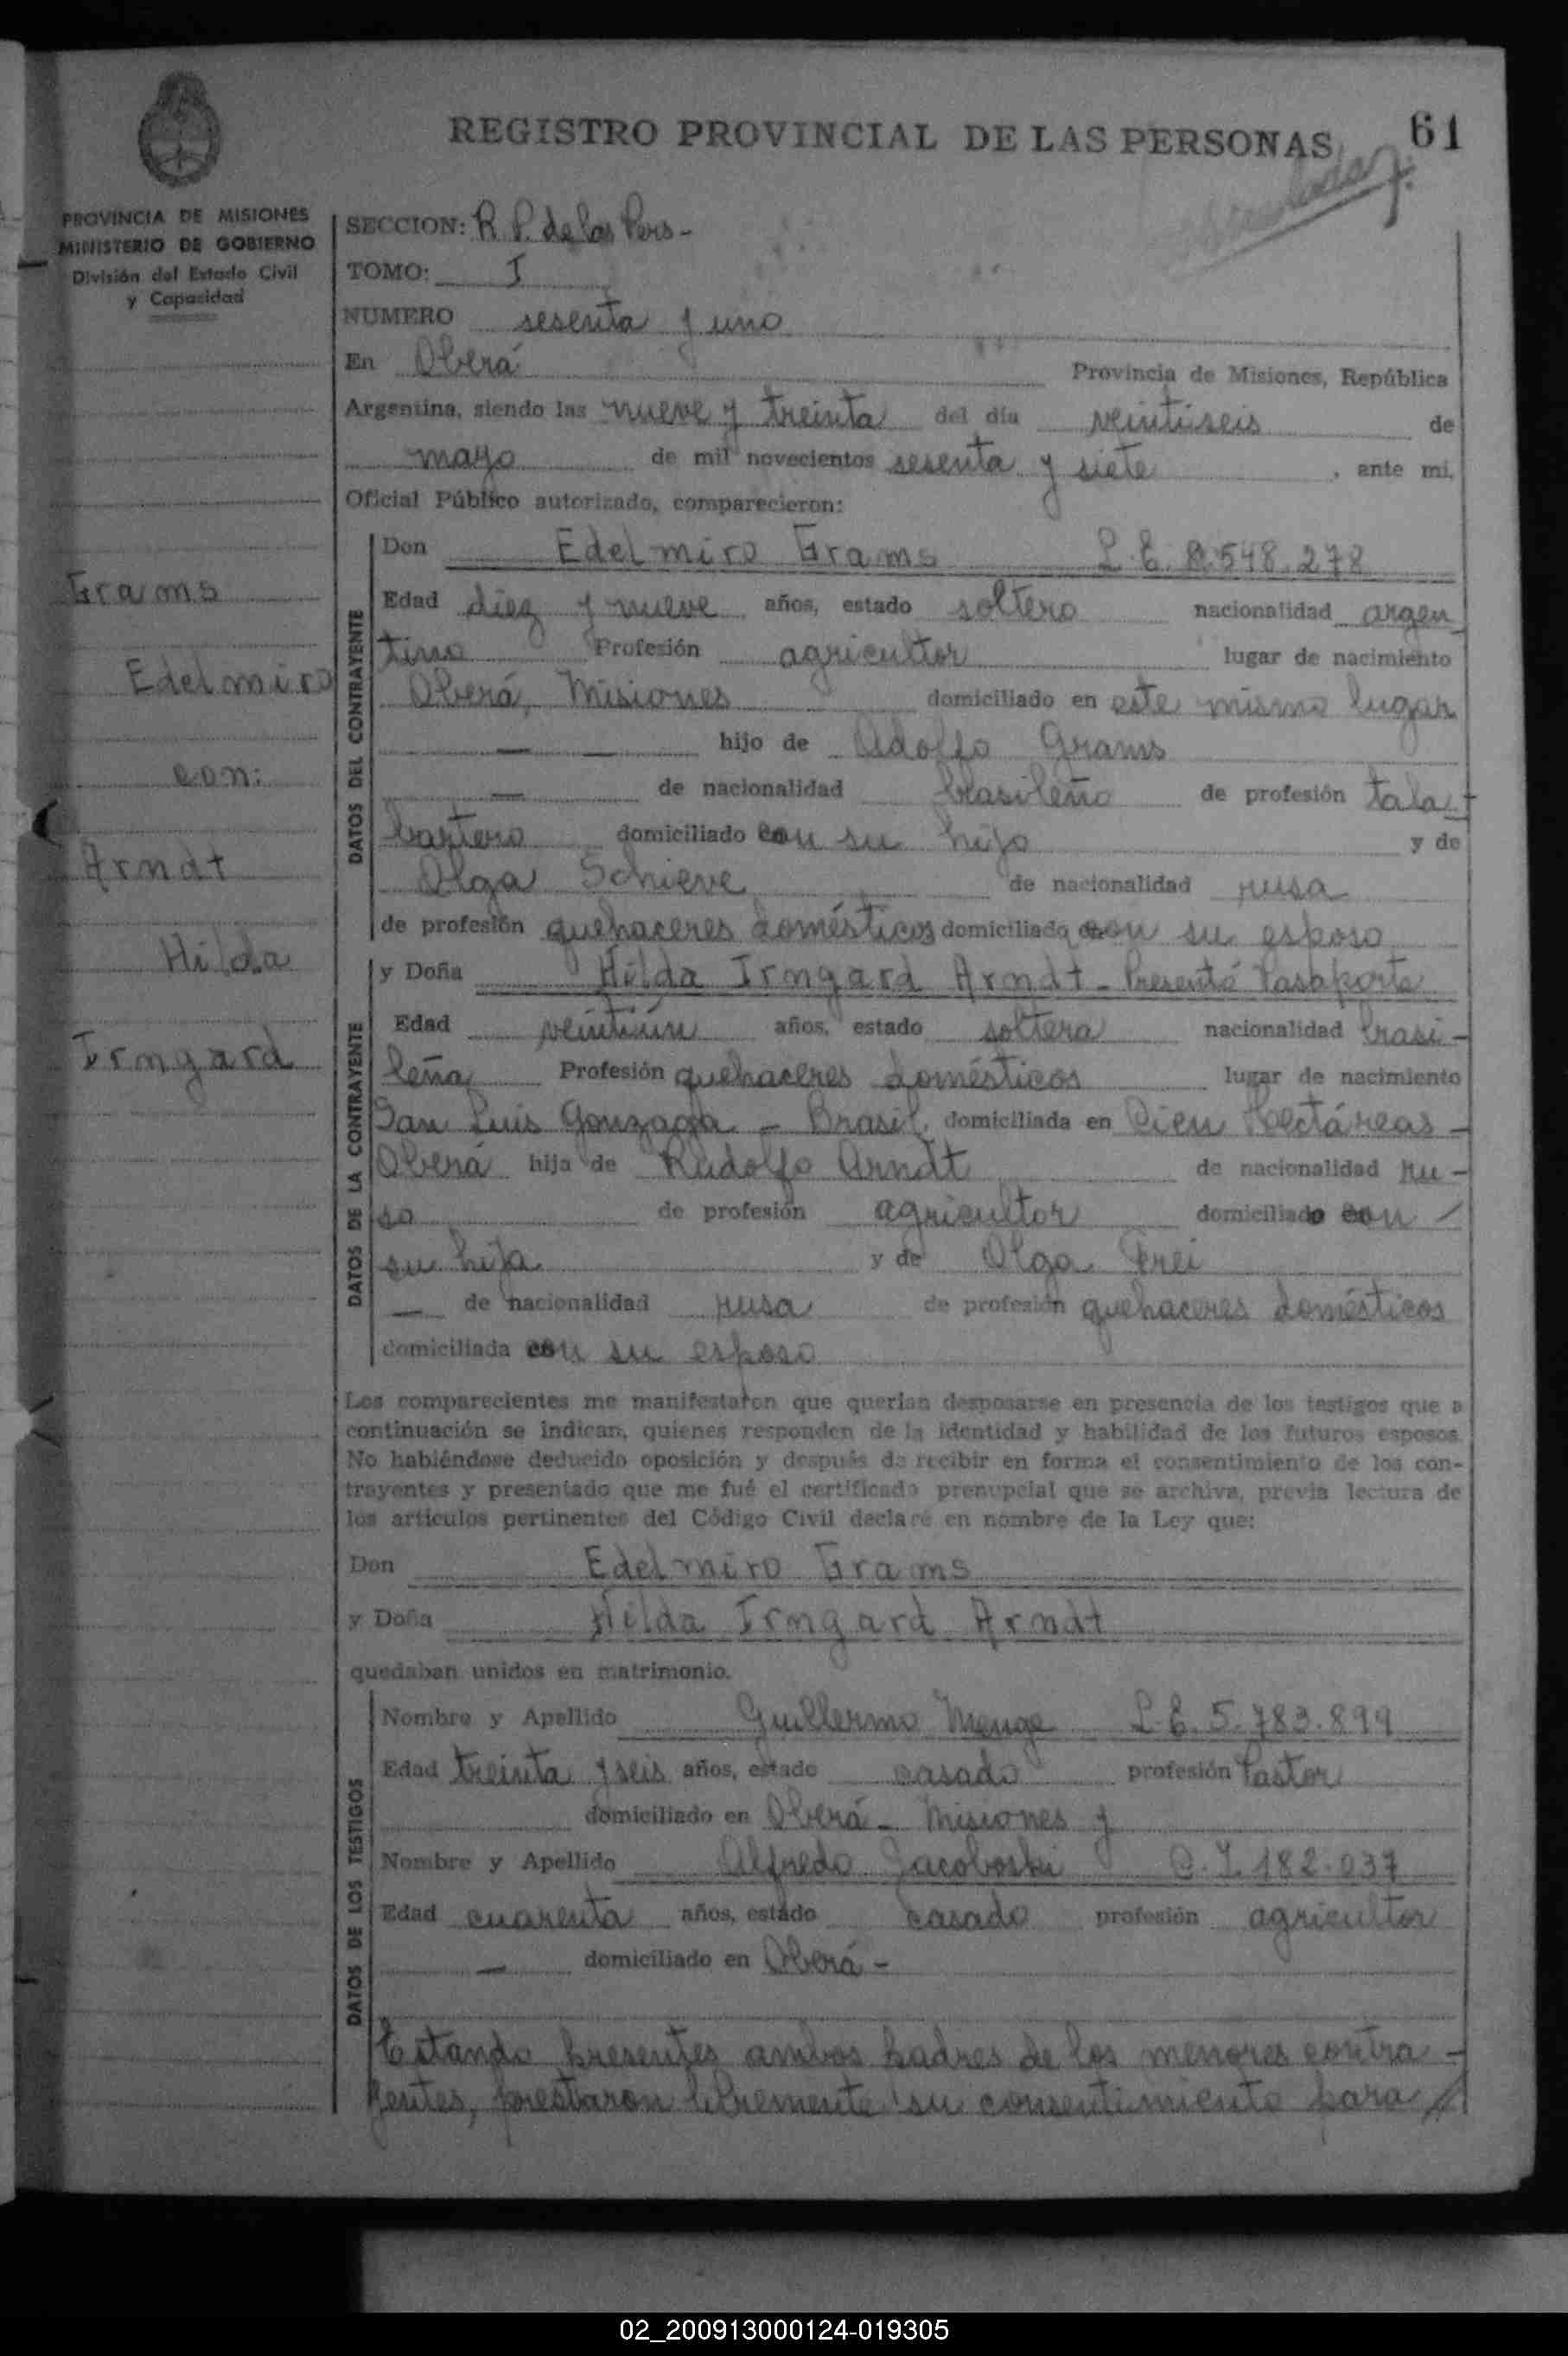 REGISTRO PROVINCIAL DE LAS PERSONAS
61
PROVINCIA DE MISIONES
MINISTERIO DE GOBIERNO
División del Estado Civil
y Capacidad
SECCION: R. P. de las Pers-
TOMO: I
NUMERO sesenta y uno
En Oberá Provincia de Misiones, República
Argentina, siendo las nueve y treinta del día veintiseis de
mayo de mil novecientos sesenta y siete, ante mi,
Oficial Público autorizado, comparecieron:
Grams
Edelmiro
con:
Arndt
Hilda
Irmgard
DATOS DEL CONTRAYENTE
Don Edelmiro Grams L.E. 8.548.278
Edad diez y nueve años, estado soltero nacionalidad argen
tino Profesión agricultor lugar de nacimiento
Oberá, Misiones domiciliado en este mismo lugar
— — hijo de Adolfo Grams
— de nacionalidad brasileño de profesión tala-
bartero domiciliado con su hijo y de
Olga Schieve de nacionalidad rusa
de profesión quehaceres domésticos domiciliada con su esposo
DATOS DE LA CONTRAYENTE
y Doña Hilda Irmgard Arndt - Presentó Pasaporte
Edad veintiún años, estado soltera nacionalidad brasi-
leña Profesión quehaceres domésticos lugar de nacimiento
San Luis Gonzaga - Brasil. domiciliada en Cien Hectáreas -
Oberá hija de Rudolfo Arndt de nacionalidad ru-
so de profesión agricultor domiciliado con
su hija y de Olga Frei
— de nacionalidad rusa de profesión quehaceres domésticos
domiciliada con su esposo
Los comparecientes me manifestaron que querían desposarse en presencia de los testigos que a
continuación se indican, quienes responden de la identidad y habilidad de los futuros esposos.
No habiéndose deducido oposición y después de recibir en forma el consentimiento de los con-
trayentes y presentado que me fué el certificado prenupcial que se archiva, previa lectura de
los artículos pertinentes del Código Civil declaré en nombre de la Ley que:
Don Edelmiro Grams
y Doña Hilda Irmgard Arndt
quedaban unidos en matrimonio.
DATOS DE LOS TESTIGOS
Nombre y Apellido Guillermo Menge L.E. 5.783.899
Edad treinta y seis años, estado casado profesión Pastor
domiciliado en Oberá - Misiones y
Nombre y Apellido Alfredo Jacoboski C.I. 182.037
Edad cuarenta años, estado casado profesión agricultor
— domiciliado en Oberá -
Estando presentes ambos padres de los menores contra-
yentes, prestaron libremente su consentimiento para //
02_200913000124-019305